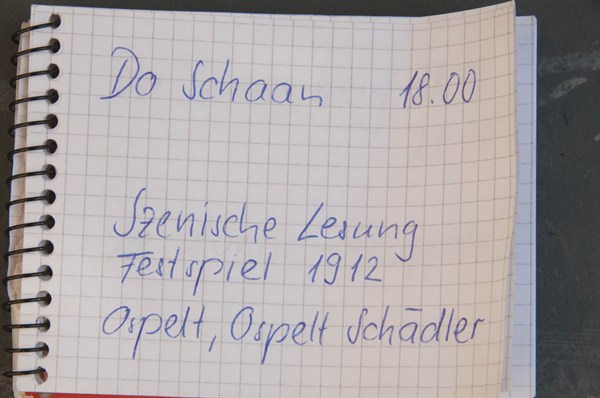 Do Schaan 18.00
Szenische Lesung
Festspiel 1912
Ospelt, Ospelt Schädler